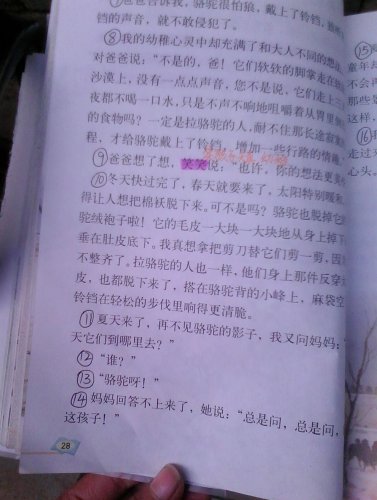 ⑦爸爸告诉我,骆驼很怕狼,戴上了铃铛,
铛的声音,就不敢侵犯了。
⑧我的幼稚心灵中却充满了和大人不同的想法
对爸爸说:“不是的,爸!它们软软的脚掌走在
沙漠上,没有一点点声音,您不是说,它们走上三
夜都不喝一口水,只是不声不响地咀嚼着从胃里
的食物吗?一定是拉骆驼的人,耐不住那长途寂
程,才给骆驼戴上了铃铛,增加一些行路的情趣
⑨爸爸想了想,笑笑说:“也许,你的想法更
⑩冬天快过完了,春天就要来了,太阳特别暖和
得让人想把棉袄脱下来。可不是吗?骆驼也脱掉它
驼绒袍子啦!它的毛皮一大块一大块地从身上掉下
垂在肚皮底下。我真想拿把剪刀替它们剪一剪,因
不整齐了。拉骆驼的人也一样,他们身上那件反穿
皮,也都脱下来了,搭在骆驼背的小峰上,麻袋空
铃铛在轻松的步伐里响得更清脆。
⑪夏天来了,再不见骆驼的影子,我又问妈妈:“
天它们到哪里去?”
⑫“谁?”
⑬“骆驼呀!”
⑭妈妈回答不上来了,她说:“总是问,总是问,
这孩子!”
28